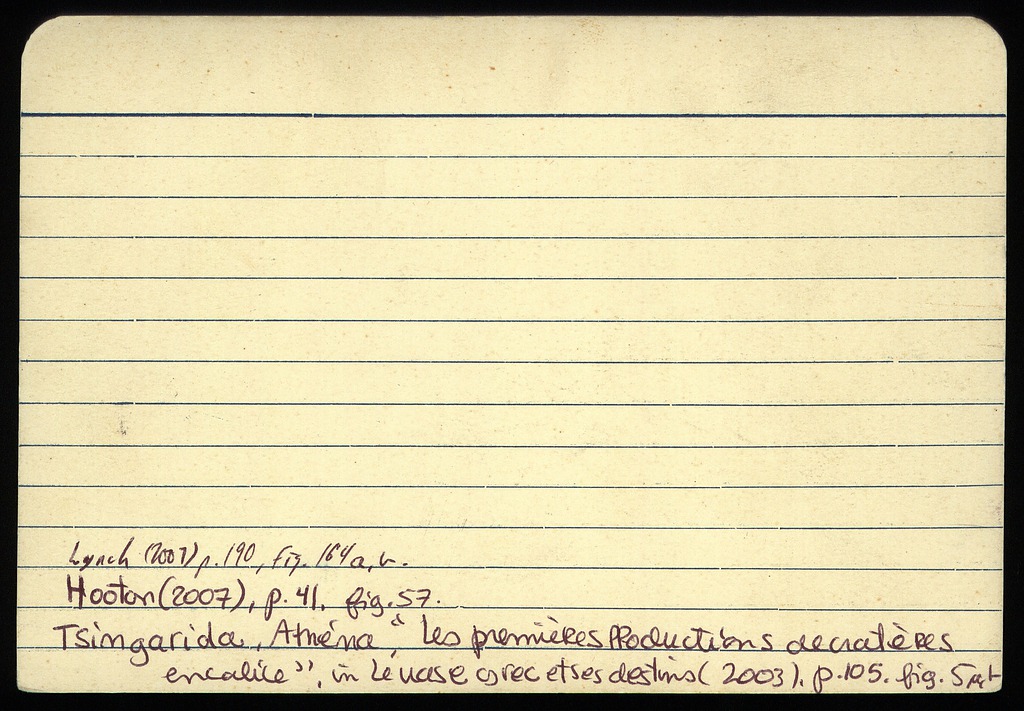 Lynch (2007) p. 190, fig. 164a, b.
Hooton (2007), p. 41, fig. 57.
Tsingarida, Athéna, "Les premières Productions de cratères
en calice", in Le vase grec et ses destins (2003), p. 105. fig. 5